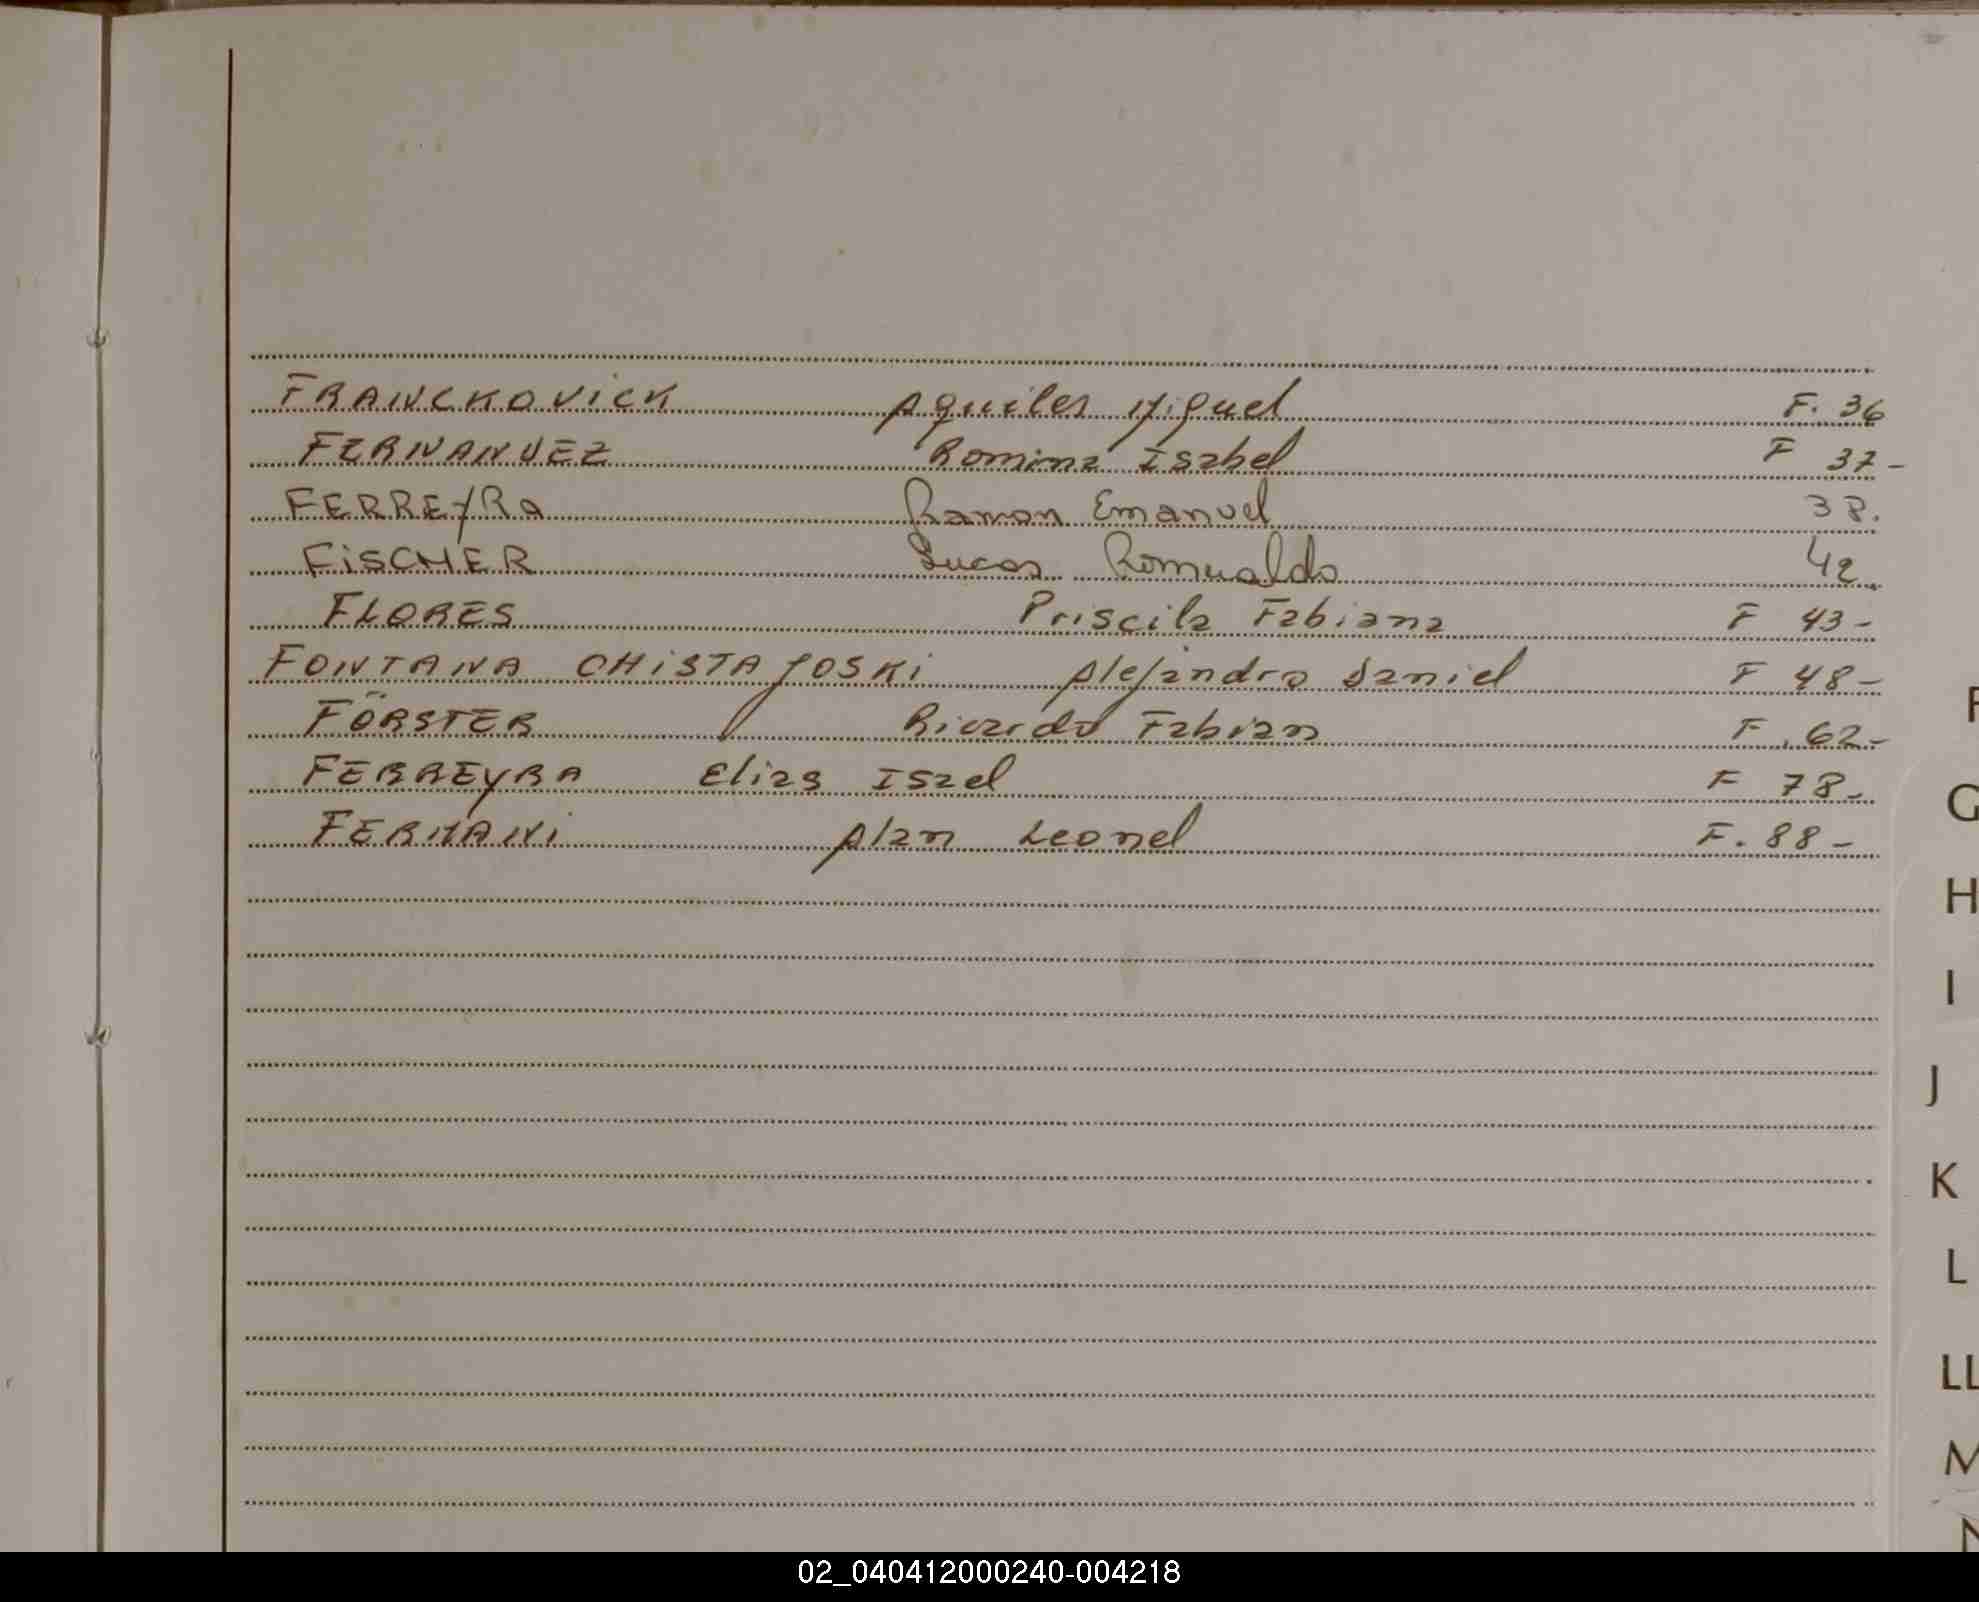 FRANCKOVICK Aquiles Miguel F. 36
FERNANDEZ Romina Isabel F 37-
FERREYRA Ramon Emanuel 38.
FISCHER Lucas Romualdo 42
FLORES Priscila Fabiana F 43-
FONTANA CHISTAJOSKI Alejandro Daniel F 48-
FÖRSTER Ricardo Fabian F. 62-
FERREYRA Elias Isael F 78-
FERMANI Alan Leonel F. 88-
F
G
H
I
J
K
L
LL
M
N
02_040412000240-004218